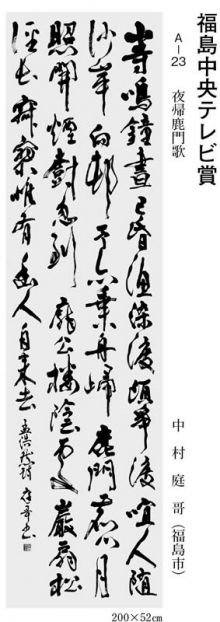 福島中央テレビ賞
A－23　夜帰鹿門歌　中村庭哥（福島市）
山寺鳴鐘晝已昏漁梁渡頭爭渡喧人随
沙岸向江邨予亦乗舟歸鹿門鹿門月
照開煙樹忽到龐公棲隠處巖扉松
徑長寂寥惟有幽人自来去 孟浩然詩 庭哥書
200×52cm